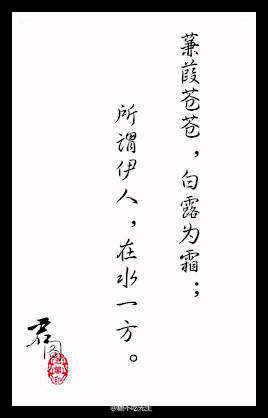 蒹葭苍苍，白露为霜；
所谓伊人，在水一方。
君